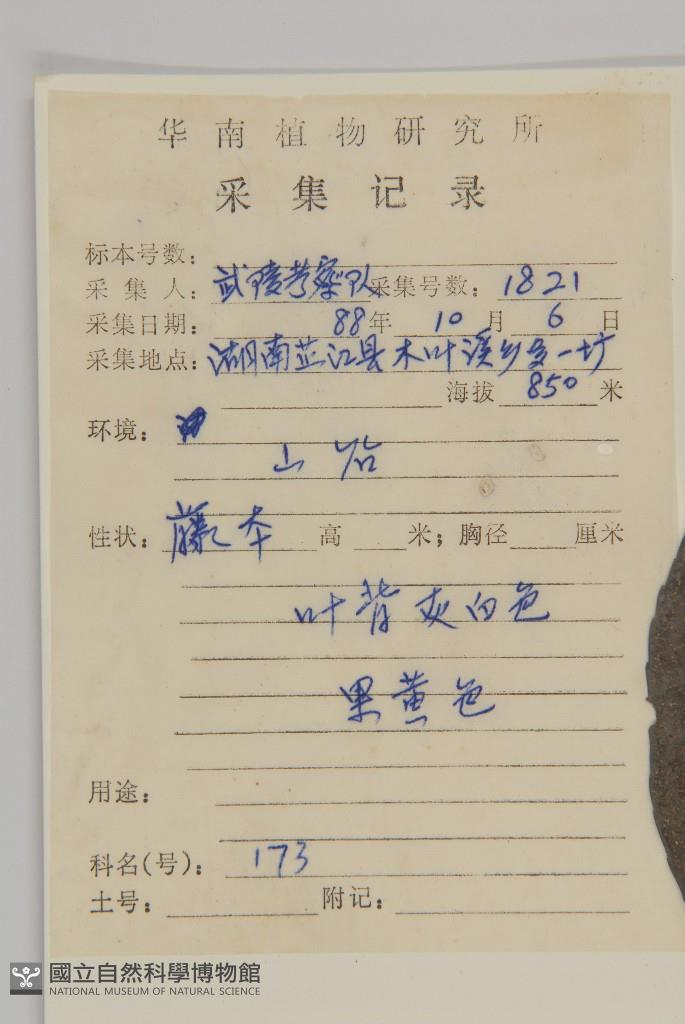 华南植物研究所
采集记录
标本号数：
采集人：武陵考察队 采集号数：1821
采集日期：88年10月6日
采集地点：湖南芷江县木叶溪乡 一坊
海拔 850 米
环境：
山谷
性状：藤本 高 米；胸径 厘米
叶背灰白色
果黄色
用途：
科名(号)：173
土号： 附记：
國立自然科學博物館
NATIONAL MUSEUM OF NATURAL SCIENCE